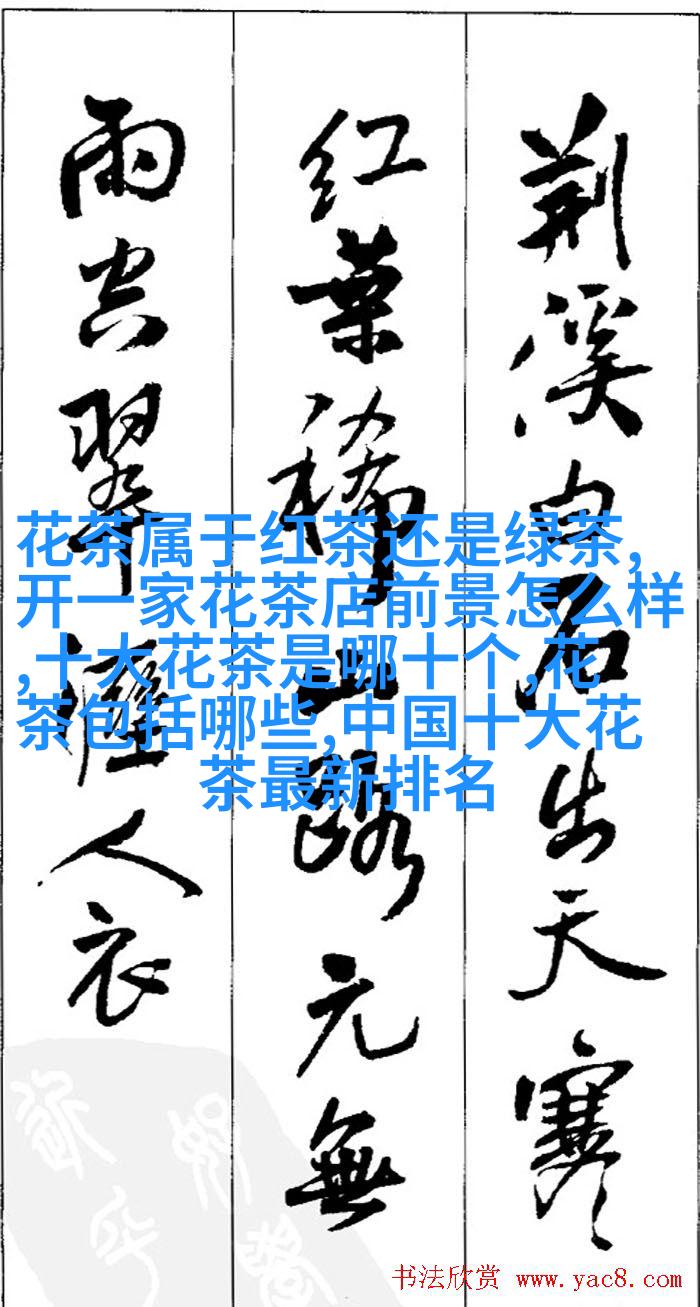 荆溪白石出天寒
红葉稀山路元無
雨空翠溼人衣
花茶属于红茶还是绿茶,
开一家花茶店前景怎么样
,十大花茶是哪十个,花
茶包括哪些,中国十大花
茶最新排名
书法欣赏 www.yac8.com